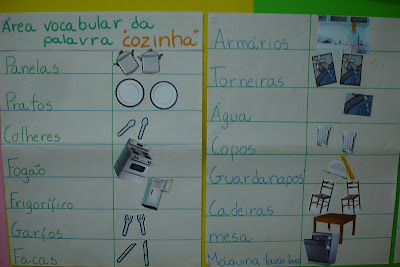 Área vocabular da
palavra "cozinha"
Panelas
Pratos
Colheres
Fogão
Frigorífico
Garfos
Facas
Armários
Torneiras
Água
Copos
Guardanapos
Cadeiras
mesa
Máquina lavar loiça